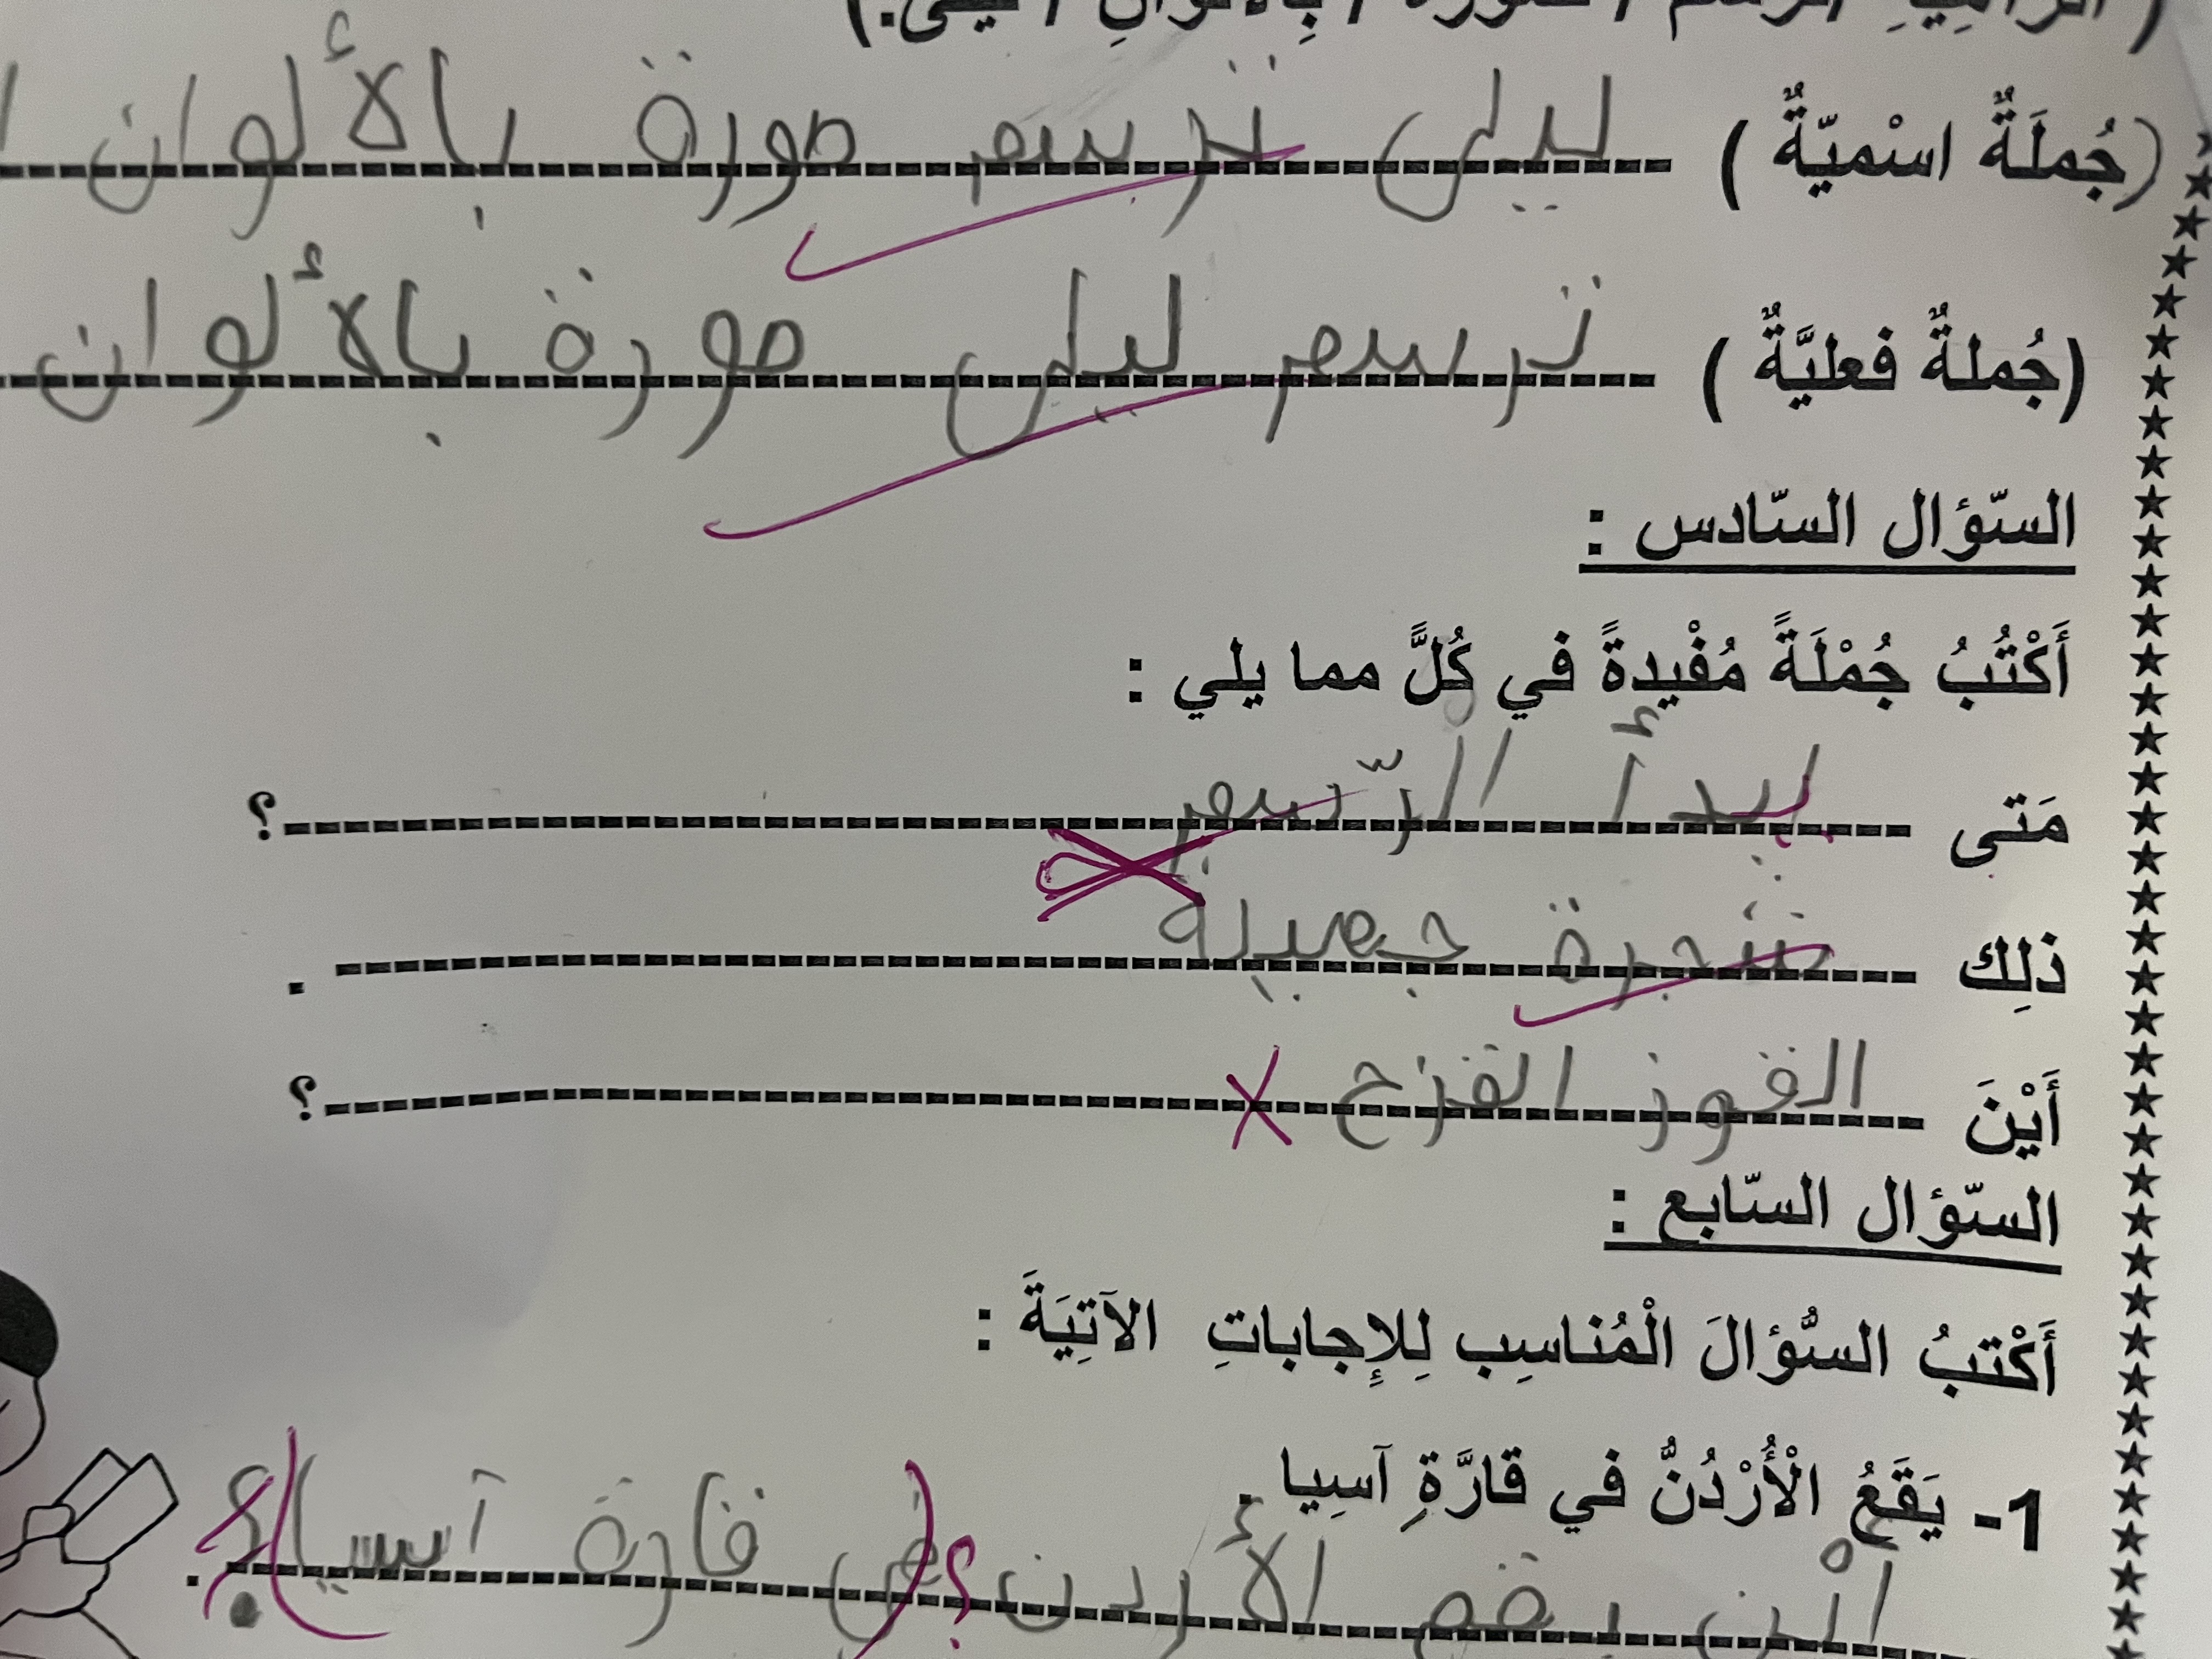 (جُملَةٌ اسْميّةٌ ) ليلى ترسم صورة بالألوان
(جُملةٌ فعليَّةٌ ) ترسم ليلى صورة بالألوان
السّؤال السّادس :
أَكْتُبُ جُمْلَةً مُفْيدةً في كُلَّ مما يلي :
مَتى يبدأ الرّسم ؟
ذلِك شجرة جميلة .
أَيْنَ القوز القزح ؟
السّؤال السّابع :
أَكْتبُ السُّؤالَ الْمُناسِب لِلإِجاباتِ الآتِيَةَ :
1- يَقَعُ الْأُرْدُنُّ في قارَّةِ آسِيا .
أين يقع الأردن؟ (في قارة آسيا)؟ .